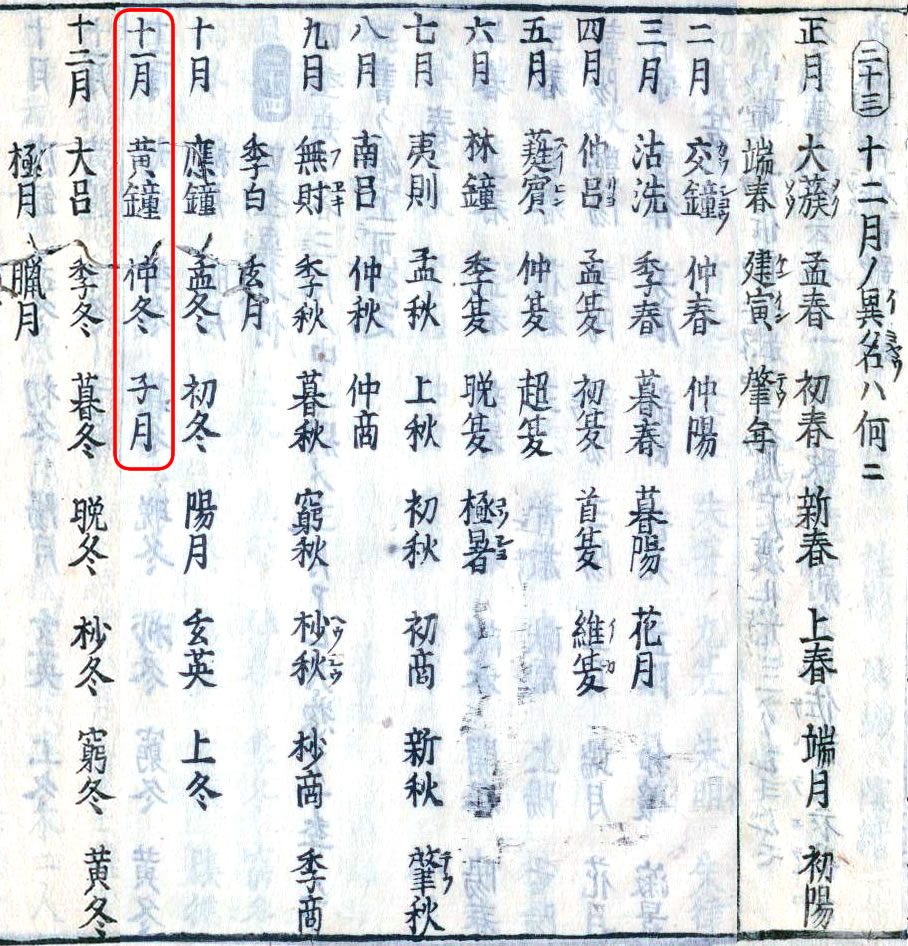 二十三 十二月ノ異名ハ何ニ
正月 大蔟 孟春 初春 新春 上春 端月 初陽
端春 建寅 肇年
二月 交鐘 仲春 仲陽
三月 沽洗 季春 暮春 暮陽 花月
四月 仲呂 孟夏 初夏 首夏 維夏
五月 蕤賓 仲夏 超夏
六月 林鐘 季夏 晩夏 極暑
七月 夷則 孟秋 上秋 初秋 初商 新秋 肇秋
八月 南呂 仲秋 仲商
九月 無財 季秋 暮秋 窮秋 杪秋 杪商 季商
季白 玄月
十月 應鐘 孟冬 初冬 陽月 玄英 上冬
十一月 黄鐘 仲冬 子月
十二月 大呂 季冬 暮冬 晩冬 杪冬 窮冬 黄冬
極月 臘月